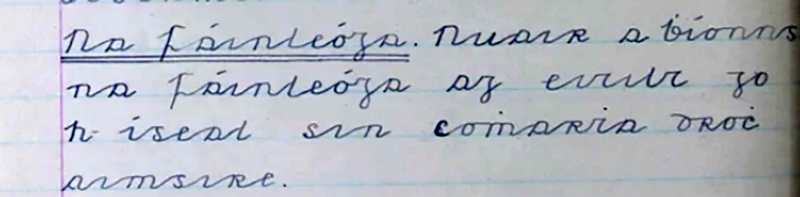 Na fáinleóga. Nuair a bíonns
na fáinleóga ag eitilt go
h-íseal sin coṁarta droċ
aimsire.